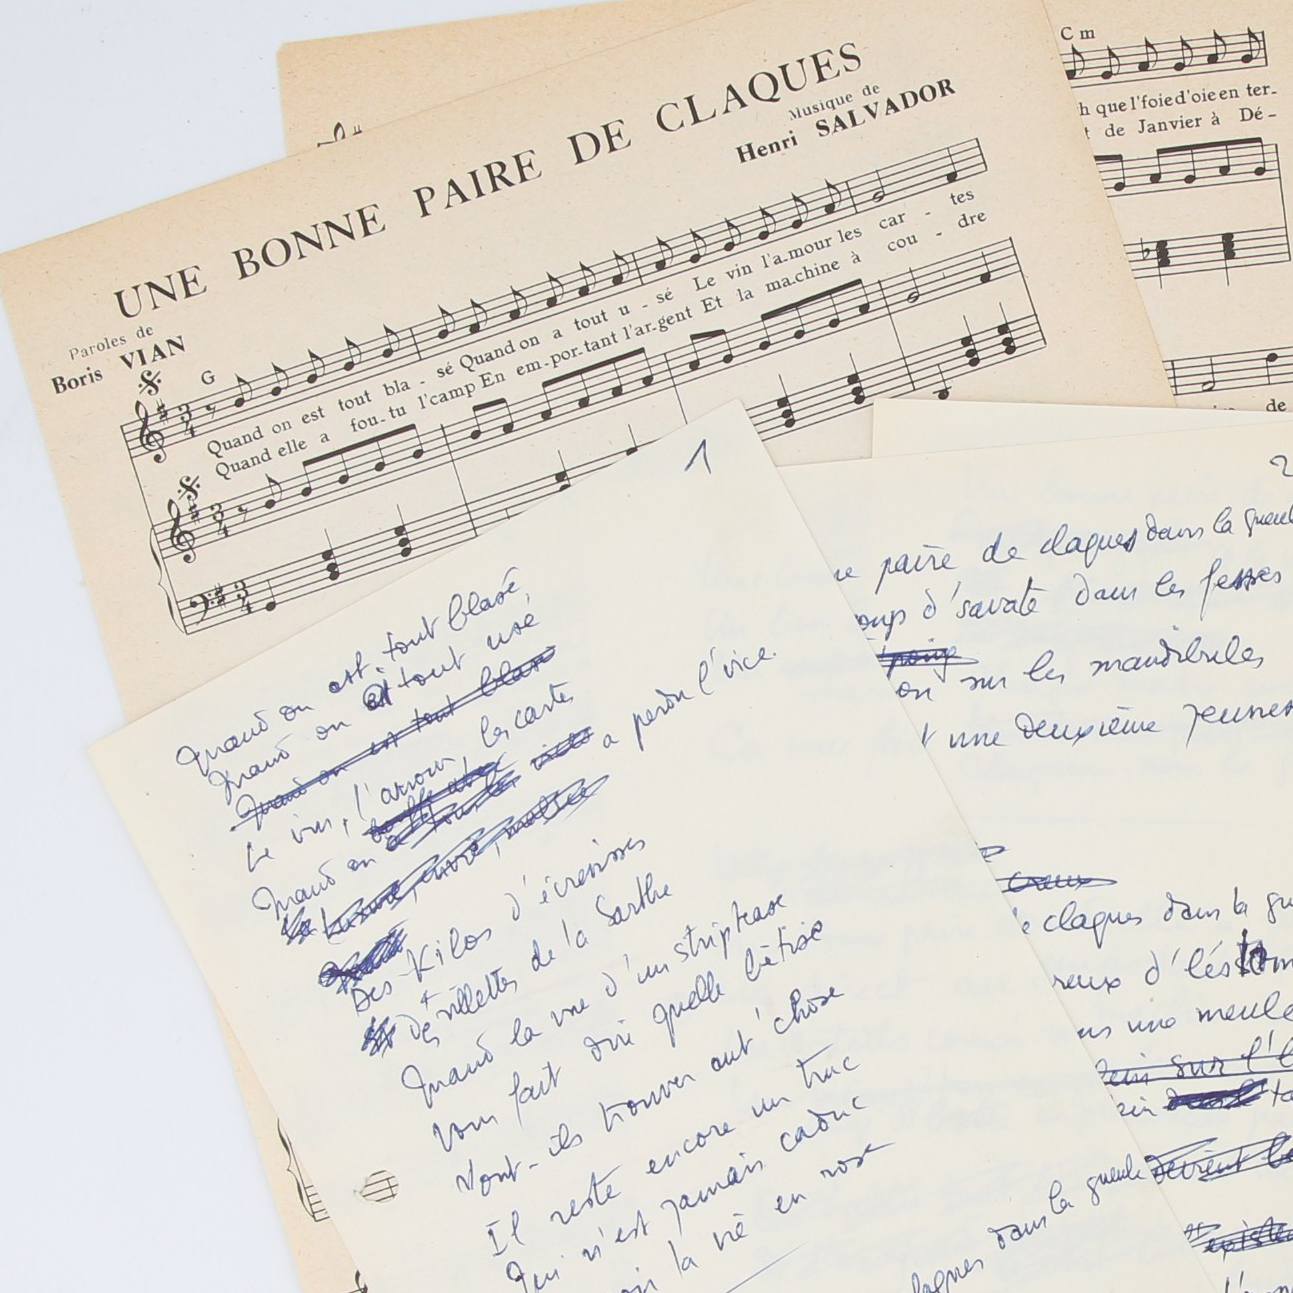 UNE BONNE PAIRE DE CLAQUES
Paroles de
Boris VIAN
Musique de
Henri SALVADOR
G
Quand on est tout bla - sé Quand on a tout u - sé Le vin l'a-mour les car - tes
Quand elle a fou-tu l'camp En em-por-tant l'ar-gent Et la ma-chine à cou - dre
Cm
h que l'foie d'oie en ter-
t de Janvier à Dé-
de
1
Quand on est tout blasé,
Quand on a tout usé
Quand on est tout blasé
Le vin, l'amour les cartes
Quand on a perdu l'vice
Des Kilos d'écrevisses
Des rillettes de la Sarthe
Quand la vue d'un striptease
Vous fait dire quelle bêtise
Vont-ils trouver aut' chose
Il reste encore un truc
Qui n'est jamais caduc
la vie en rose
2
ne paire de claques dans la gueul
oup d'savate dans les fesses
poing
on sur les mandibules
t une deuxième jeunes
creux
e claques dans la gu
reux d'l'és
ns une meule
sur l'
claques dans la gueule devient
existe